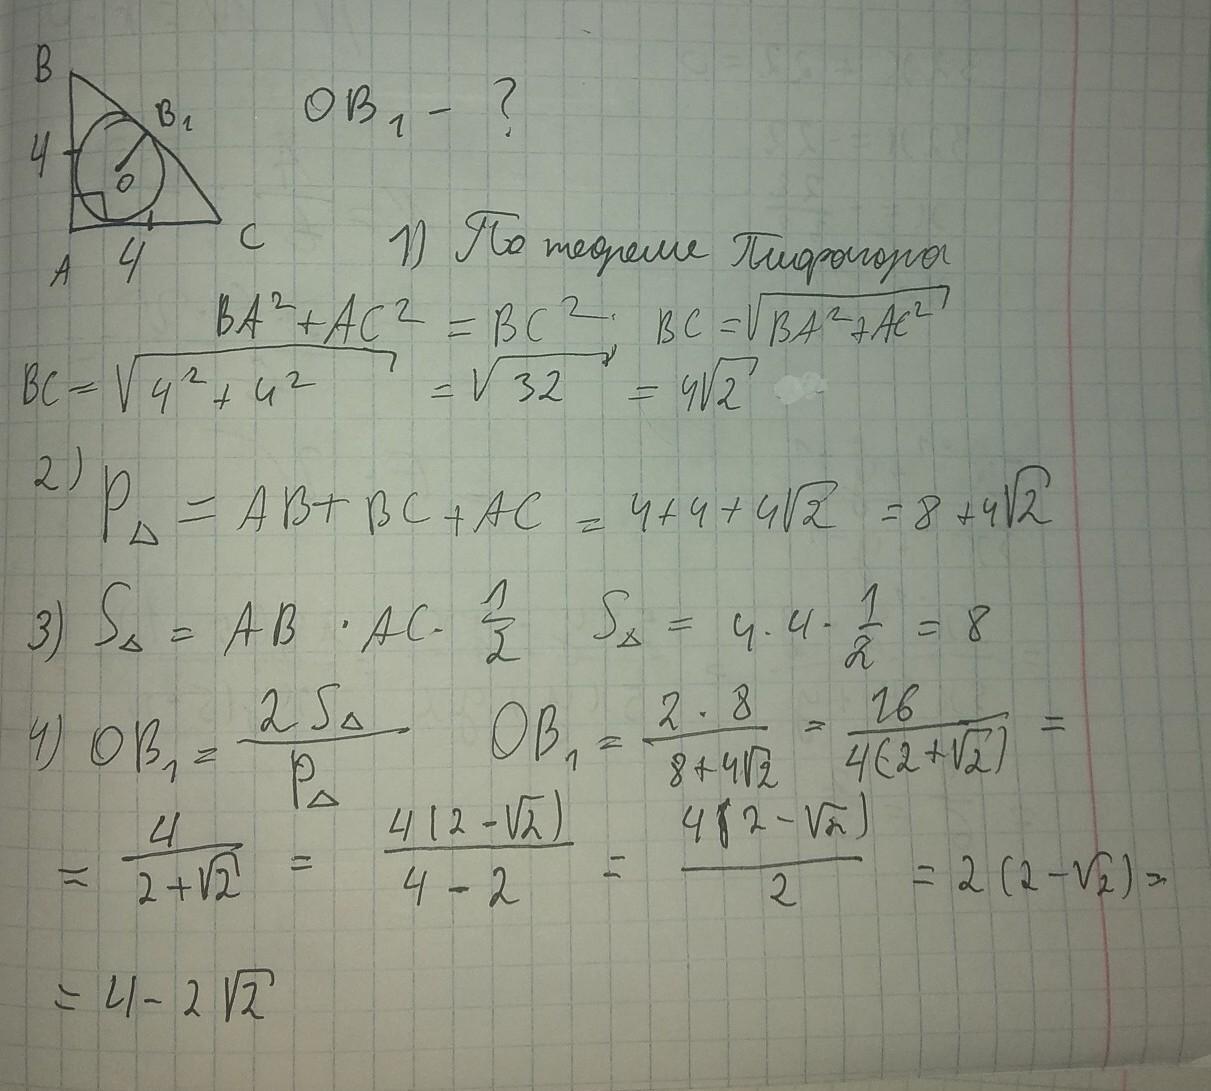 B
B₁
OB₁ - ?
4
O
A
4
C
1) По теореме Пифагора
BA² + AC² = BC²; BC = √(BA² + AC²)
BC = √(4² + 4²) = √32 = 4√2
2) P△ = AB + BC + AC = 4 + 4 + 4√2 = 8 + 4√2
3) S△ = AB · AC · 1/2 S△ = 4 · 4 · 1/2 = 8
4) OB₁ = 2S△/P△ OB₁ = 2 · 8/(8 + 4√2) = 16/(4(2 + √2)) =
= 4/(2 + √2) = 4(2 - √2)/(4 - 2) = 4(2 - √2)/2 = 2(2 - √2) =
= 4 - 2√2